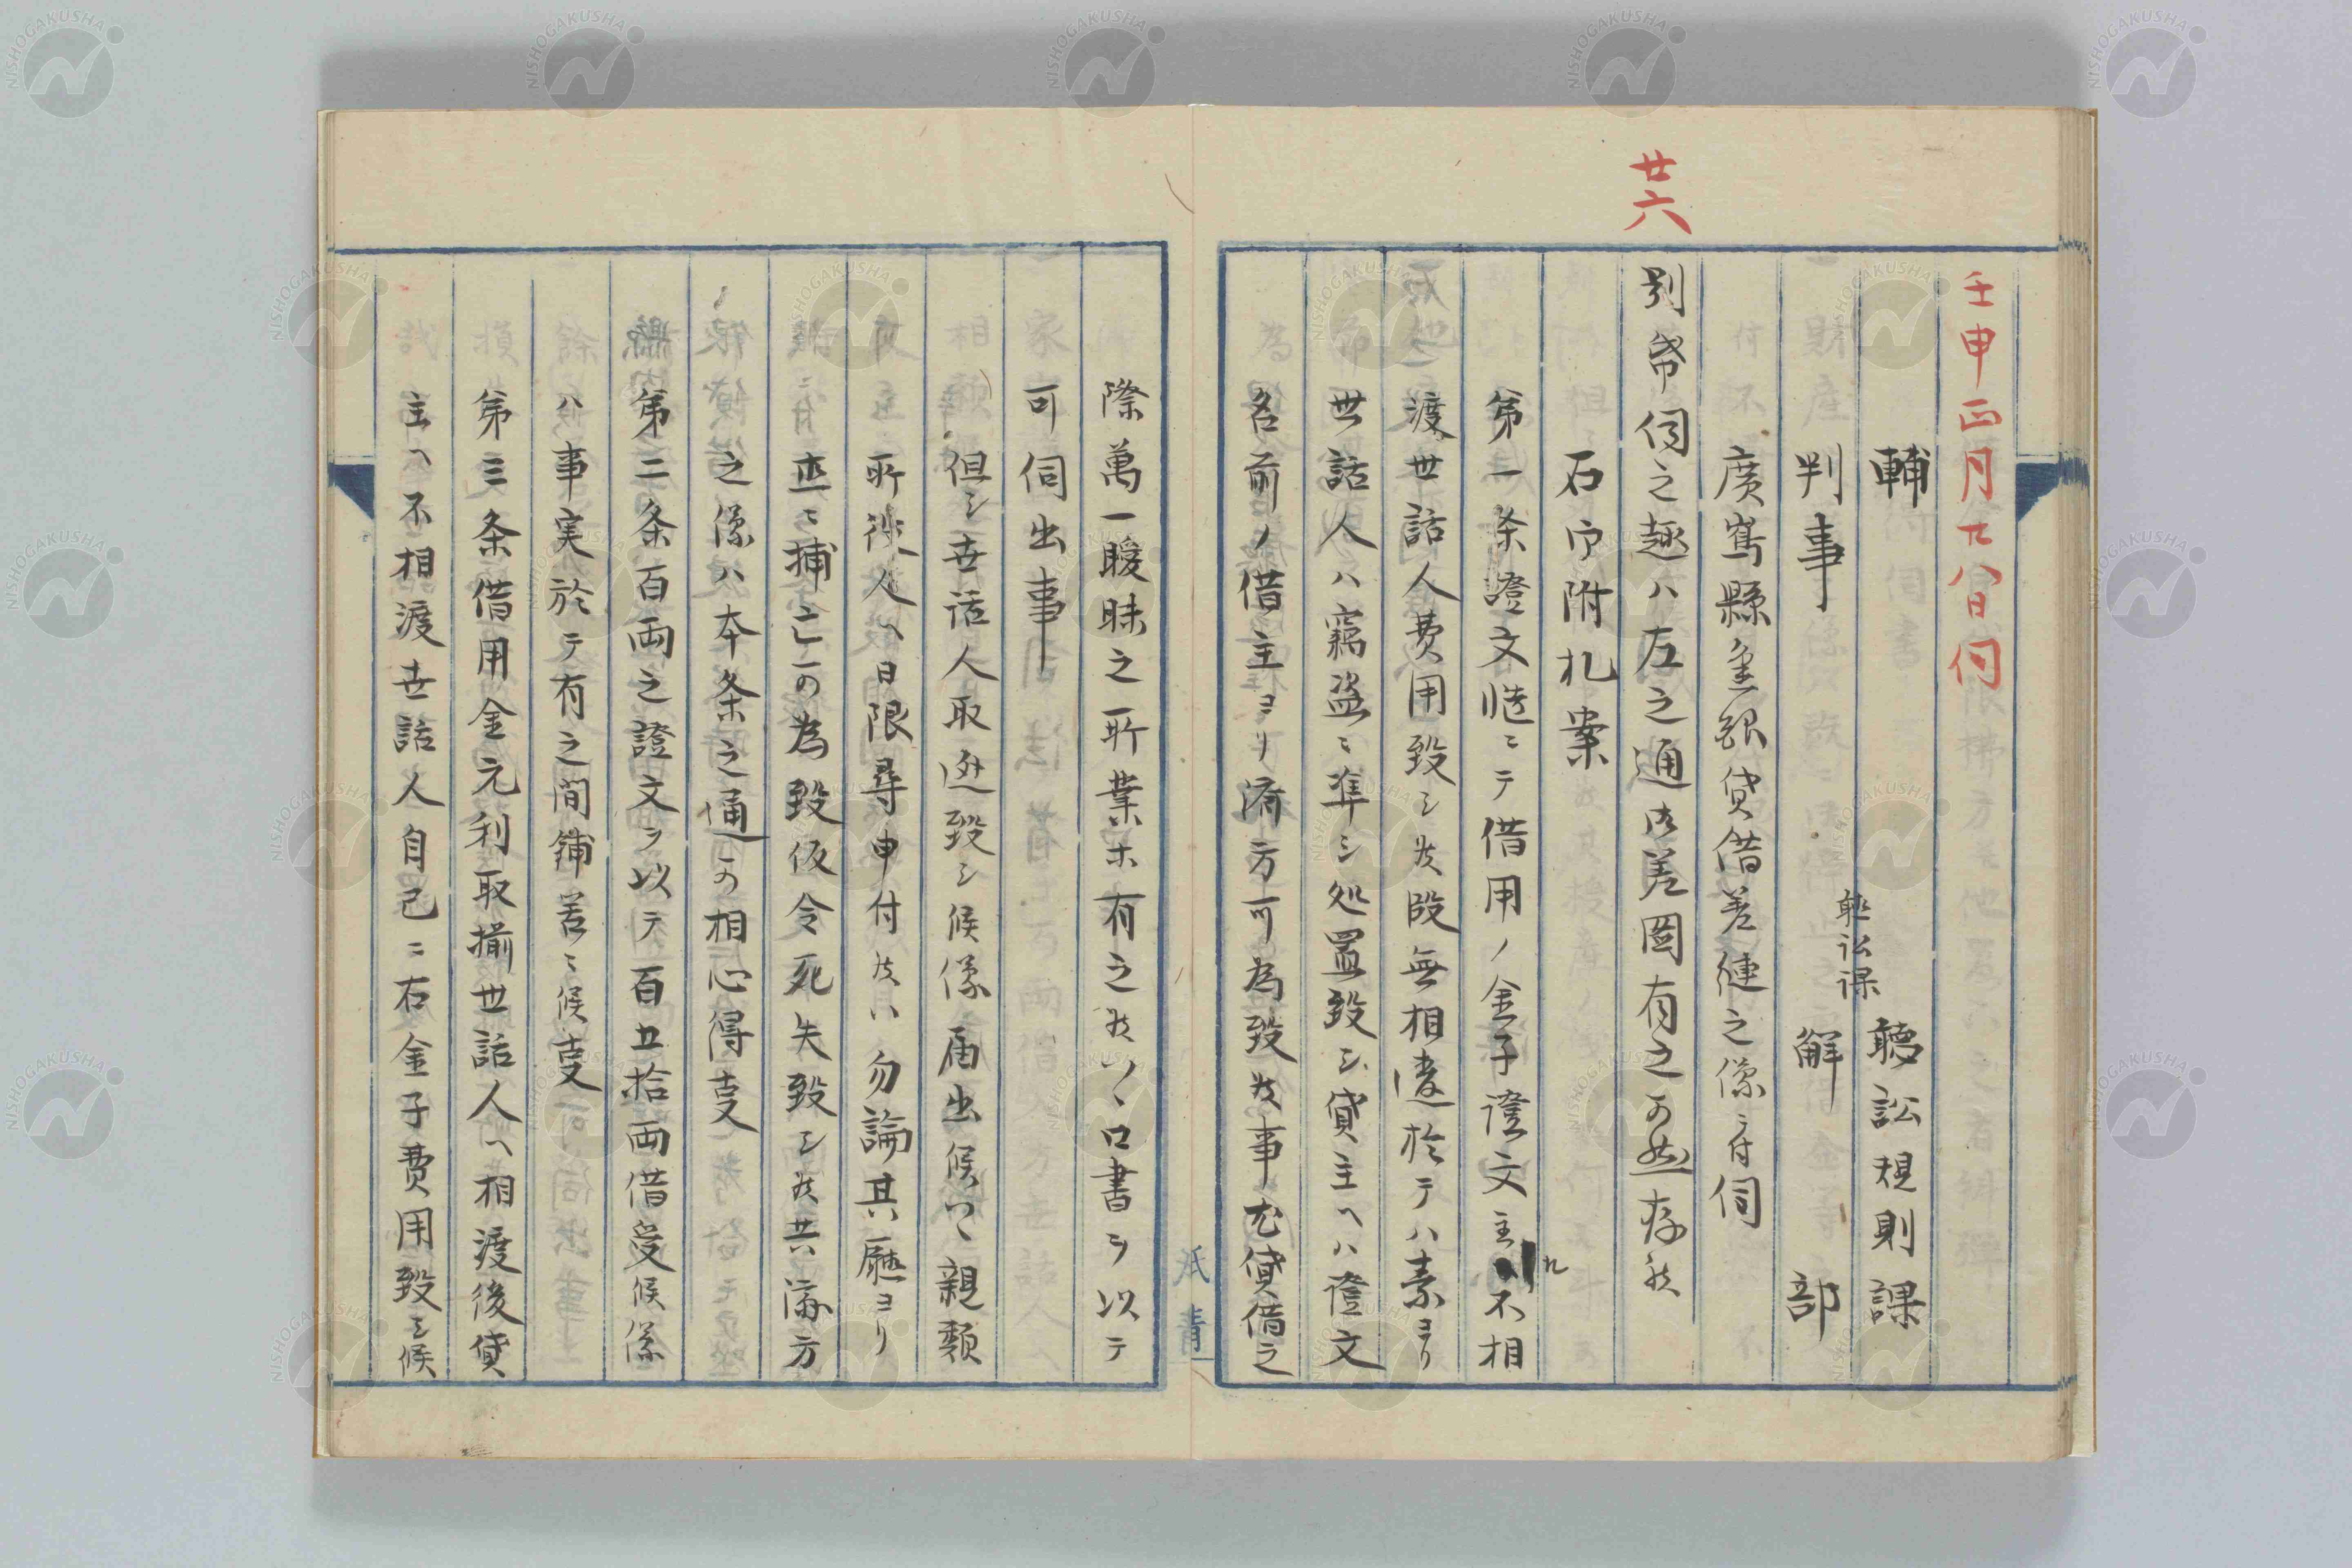 廿六
壬申正月廿八日伺
輔 聽訟規則課
聴訟課
判事 解部
廣嶌縣金銀貸借差縺之儀ニ付伺
別帋伺之趣ハ左之通御差圖有之可然存候
石户附札案
第一条證文慥ニテ借用ノ金子證文主ヘ不相
渡世話人費用致シ候段無相違於テハ素ヨリ
世話人ハ竊盗ニ準シ処置致シ貸主ヘハ證文
名前ノ借主ヨリ済方可為致候事尤貸借之
際萬一曖昧之所業ホ有之候ハヽ口書ヲ以テ
可伺出事
但シ世話人取迯致シ候儀届出候ハヽ親類
所役人ヘ日限尋申付候ハ勿論其廳ヨリ
嚴ニ捕亡可為致仮令死失致シ候共済方
之儀ハ本条之通可相心得事
第二条百両之證文ヲ以テ百五拾両借受候儀
ハ事実於テ有之間鋪筈ニ候事
第三条借用金元利取揃世話人ヘ相渡後貸
主ヘ不相渡世話人自己ニ右金子費用致シ候
NISHOGAKUSHA